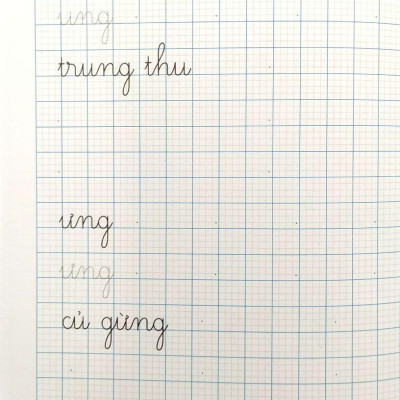 ung
trung thu
ưng
ưng
củ gừng